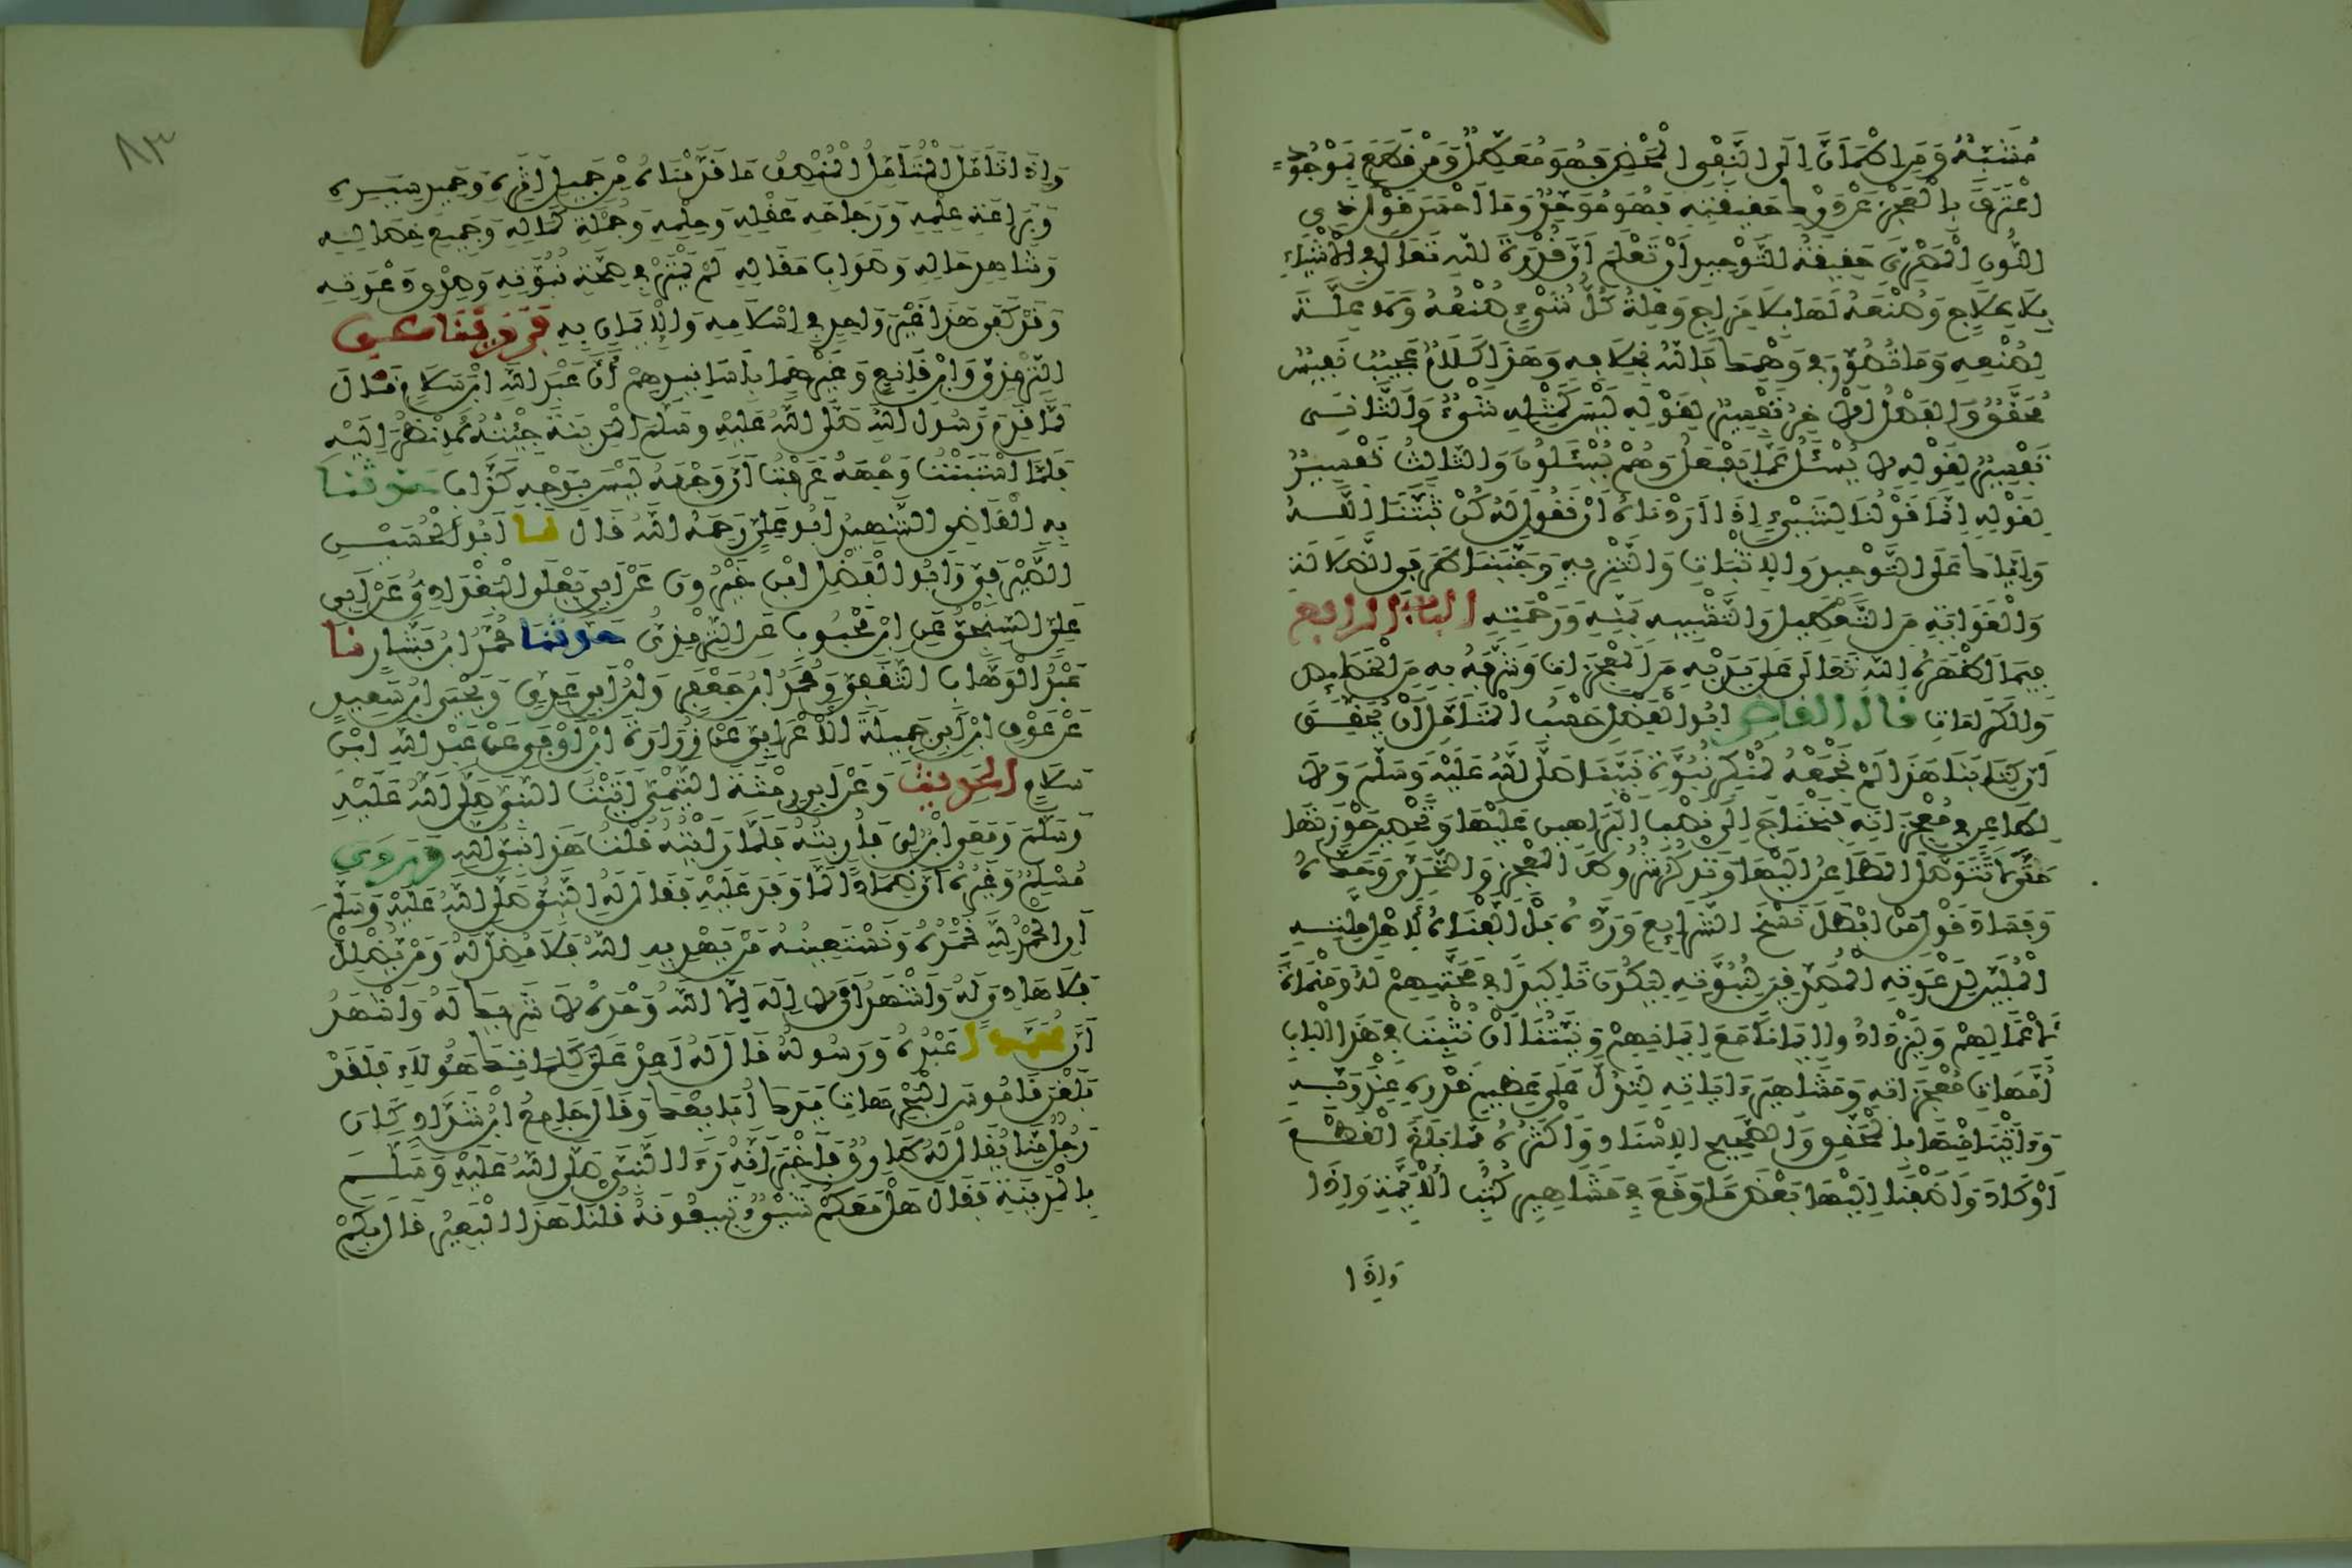 مُشَبِّهٌ وَمَنِ اطْمَأَنَّ إِلَى النَّفْيِ الْمَحْضِ فَهُوَ مُعَطِّلٌ وَمَنْ قَطَعَ بِمَوْجُودٍ
اعْتَرَفَ بِالْعَجْزِ عَنْ دَرْكِ حَقِيقَتِهِ فَهُوَ مُوَحِّدٌ وَمَا أَحْسَنَ قَوْلَ ذِي
النُّونِ الْمِصْرِيِّ حَقِيقَةُ التَّوْحِيدِ أَنْ تَعْلَمَ أَنَّ قُدْرَةَ اللهِ تَعَالَى فِي الْأَشْيَاءِ
بِلَا عِلَاجٍ وَصُنْعَهُ لَهَا بِلَا مِزَاجٍ وَعِلَّةُ كُلِّ شَيْءٍ صُنْعُهُ وَلَا عِلَّةَ
لِصُنْعِهِ وَمَا تُصُوِّرَ فِي وَهْمِكَ فَاللهُ بِخِلَافِهِ وَهَذَا كَلَامٌ عَجِيبٌ نَفِيسٌ
مُحَقَّقٌ وَالْفَصْلُ الْآخَرُ تَفْسِيرٌ لِقَوْلِهِ لَيْسَ كَمِثْلِهِ شَيْءٌ وَالثَّانِي
تَفْسِيرٌ لِقَوْلِهِ لَا يُسْئَلُ عَمَّا يَفْعَلُ وَهُمْ يُسْئَلُونَ وَالثَّالِثُ تَفْسِيرٌ
لِقَوْلِهِ إِنَّمَا قَوْلُنَا لِشَيْءٍ إِذَا أَرَدْنَاهُ أَنْ نَقُولَ لَهُ كُنْ ثَبَّتَنَا اللهُ
وَإِيَّاكَ عَلَى التَّوْحِيدِ وَالْإِثْبَاتِ وَالتَّنْزِيهِ وَجَنَّبَنَا طَرَفَيِ الضَّلَالَةِ
وَالْغَوَايَةِ مِنَ التَّعْطِيلِ وَالتَّشْبِيهِ بِمَنِّهِ وَرَحْمَتِهِ الْبَابُ الرَّابِعُ
فِيمَا أَظْهَرَهُ اللهُ تَعَالَى عَلَى يَدَيْهِ مِنَ الْمُعْجِزَاتِ وَشَرَّفَهُ بِهِ مِنَ الْخَصَائِصِ
وَالْكَرَامَاتِ قَالَ الْقَاضِي أَبُو الْفَضْلِ حَسْبُ الْمُتَأَمِّلِ أَنْ يُحَقِّقَ
أَنَّ كِتَابَنَا هَذَا لَمْ نَجْمَعْهُ لِمُنْكِرِ نُبُوَّةِ نَبِيِّنَا صَلَّى اللهُ عَلَيْهِ وَسَلَّمَ وَلَا
لِطَاعِنٍ فِي مُعْجِزَاتِهِ فَنَحْتَاجَ إِلَى نَصْبِ الْبَرَاهِينِ عَلَيْهَا وَتَحْصِينِ حَوْزَتِهَا
حَتَّى لَا يَتَوَصَّلَ الطَّاعِنُ إِلَيْهَا وَنَذْكُرَ شُرُوطَ الْمُعْجِزِ وَالتَّحَدِّيَ وَحَدَّهُ
وَفَسَادَ قَوْلِ مَنْ أَبْطَلَ نَسْخَ الشَّرَائِعِ وَرَدَّهُ بَلْ أَلَّفْنَاهُ لِأَهْلِ مِلَّتِهِ
الْمُلَبِّينَ لِدَعْوَتِهِ الْمُصَدِّقِينَ لِنُبُوَّتِهِ لِيَكُونَ تَأْكِيدًا فِي مَحَبَّتِهِمْ لَهُ وَمَنْمَاةً
لِأَعْمَالِهِمْ وَلِيَزْدَادُوا إِيمَانًا مَعَ إِيمَانِهِمْ وَنِيَّتُنَا أَنْ نُثْبِتَ فِي هَذَا الْبَابِ
أُمَّهَاتِ مُعْجِزَاتِهِ وَمَشَاهِيرَ آيَاتِهِ لِتَدُلَّ عَلَى عَظِيمِ قَدْرِهِ عِنْدَ رَبِّهِ
وَأَتَيْنَا مِنْهَا بِالْمُحَقَّقِ وَالصَّحِيحِ الْإِسْنَادِ وَأَكْثَرُهُ مِمَّا بَلَغَ الْقَطْعَ
أَوْ كَادَ وَأَضَفْنَا إِلَيْهَا بَعْضَ مَا وَقَعَ فِي مَشَاهِيرِ كُتُبِ الْأَئِمَّةِ وَإِذَا
وَإِذَا
٨٣
وَإِذَا تَأَمَّلَ الْمُتَأَمِّلُ الْمُنْصِفُ مَا قَدَّمْنَاهُ مِنْ جَمِيلِ أَثَرِهِ وَحَمِيدِ سِيَرِهِ
وَبَرَاعَةِ عِلْمِهِ وَرَجَاحَةِ عَقْلِهِ وَحِلْمِهِ وَجُمْلَةِ كَمَالِهِ وَجَمِيعِ خِصَالِهِ
وَشَاهِدِ حَالِهِ وَصَوَابِ مَقَالِهِ لَمْ يَمْتَرِ فِي صِحَّةِ نُبُوَّتِهِ وَصِدْقِ دَعْوَتِهِ
وَقَدْ كَفَى هَذَا غَيْرَ وَاحِدٍ فِي إِسْلَامِهِ وَالْإِيمَانِ بِهِ فَرُوِّينَا عَنِ
التِّرْمِذِيِّ وَابْنِ قَانِعٍ وَغَيْرِهِمَا بِأَسَانِيدِهِمْ أَنَّ عَبْدَ اللهِ ابْنَ سَلَامٍ قَالَ
لَمَّا قَدِمَ رَسُولُ اللهِ صَلَّى اللهُ عَلَيْهِ وَسَلَّمَ الْمَدِينَةَ جِئْتُهُ لِأَنْظُرَ إِلَيْهِ
فَلَمَّا اسْتَبَنْتُ وَجْهَهُ عَرَفْتُ أَنَّ وَجْهَهُ لَيْسَ بِوَجْهِ كَذَّابٍ حَدَّثَنَا
بِهِ الْقَاضِي الشَّهِيدُ أَبُو عَلِيٍّ رَحِمَهُ اللهُ قَالَ نَا أَبُو الْحُسَيْنِ
الصَّيْرَفِيُّ وَأَبُو الْفَضْلِ ابْنُ خَيْرُونَ عَنْ أَبِي يَعْلَى الْبَغْدَادِيِّ عَنْ أَبِي
عَلِيٍّ السِّنْجِيِّ عَنِ ابْنِ مَحْبُوبٍ عَنِ التِّرْمِذِيِّ حَدَّثَنَا مُحَمَّدُ ابْنُ بَشَّارٍ نَا
عَبْدُ الْوَهَّابِ الثَّقَفِيُّ وَمُحَمَّدُ ابْنُ جَعْفَرٍ وَابْنُ أَبِي عَدِيٍّ وَيَحْيَى ابْنُ سَعِيدٍ
عَنْ عَوْفِ ابْنِ أَبِي جَمِيلَةَ الْأَعْرَابِيِّ عَنْ زُرَارَةَ ابْنِ أَوْفَى عَنْ عَبْدِ اللهِ ابْنِ
سَلَامٍ الْحَدِيثَ وَعَنْ أَبِي رِمْثَةَ التَّيْمِيِّ أَتَيْتُ النَّبِيَّ صَلَّى اللهُ عَلَيْهِ
وَسَلَّمَ وَمَعِي ابْنٌ لِي فَأُرِيتُهُ فَلَمَّا رَأَيْتُهُ قُلْتُ هَذَا نَبِيُّ اللهِ وَرَوَى
مُسْلِمٌ وَغَيْرُهُ أَنَّ ضِمَادًا لَمَّا وَفَدَ عَلَيْهِ فَقَالَ لَهُ النَّبِيُّ صَلَّى اللهُ عَلَيْهِ وَسَلَّمَ
أَنِ الْحَمْدُ لِلَّهِ نَحْمَدُهُ وَنَسْتَعِينُهُ مَنْ يَهْدِيهِ اللهُ فَلَا مُضِلَّ لَهُ وَمَنْ يُضْلِلْ
فَلَا هَادِيَ لَهُ وَأَشْهَدُ أَنْ لَا إِلَهَ إِلَّا اللهُ وَحْدَهُ لَا شَرِيكَ لَهُ وَأَشْهَدُ
أَنَّ مُحَمَّدًا عَبْدُهُ وَرَسُولُهُ قَالَ لَهُ أَعِدْ عَلَيَّ كَلِمَاتِكَ هَؤُلَاءِ فَلَقَدْ
بَلَغْنَ قَامُوسَ الْبَحْرِ هَاتِ يَدَكَ أُبَايِعْكَ وَقَالَ جَامِعُ ابْنُ شَدَّادٍ كَانَ
رَجُلٌ مِنَّا يُقَالُ لَهُ طَارِقٌ فَأَخْبَرَ أَنَّهُ رَءَا النَّبِيَّ صَلَّى اللهُ عَلَيْهِ وَسَلَّمَ
بِالْمَدِينَةِ فَقَالَ هَلْ مَعَكُمْ شَيْءٌ تَبِيعُونَهُ قُلْنَا هَذَا الْبَعِيرُ قَالَ بِكَمْ